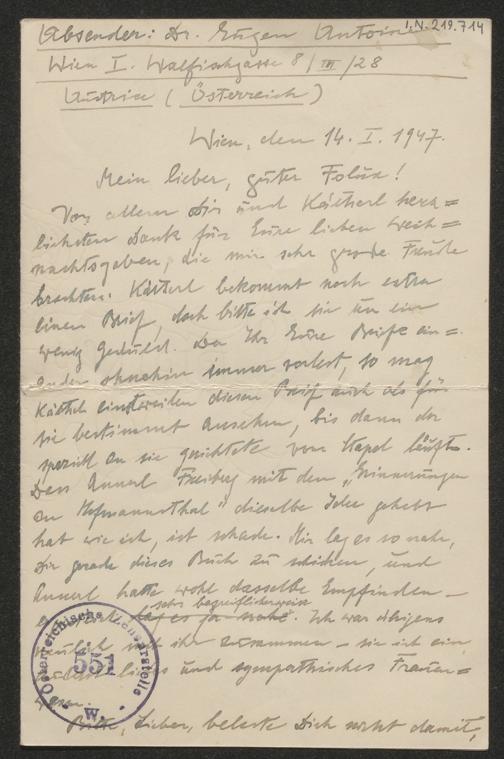 I.N. 219.714
Absender: Dr. Eugen Antoine
Wien I. Walfischgasse 8/III/28
Austria (Österreich)
Wien, den 14. I. 1947.
Mein lieber, guter Felix!
Vor allem Dir und Kätherl herz=
lichsten Dank für Eure lieben Weih=
nachtsgaben, die mir sehr große Freude
brachten. Kätherl bekommt noch extra
einen Brief, doch bitte ich sie um ein
wenig Geduld. Da Ihr Eure Briefe ein=
ander ohnehin immer vorlest, so mag
Käthel einstweilen diesen Brief auch als für
sie bestimmt ansehen, bis dann der
speziell an sie gerichtete vom Stapel läuft.
Dass Annerl Freiberg mit den „Erinnerungen
an Hofmannsthal" dieselbe Idee gehabt
hat wie ich, ist schade. Mir lag es so nahe,
Dir gerade dieses Buch zu schicken, und
Annerl hatte wohl dasselbe Empfinden –
sehr begreiflicherweise
lag es ja nahe. Ich war übrigens
neulich mit ihr zusammen – sie ist ein
liebes und sympathisches Frauen=
wesen.
Bitte, Lieber, belaste Dich nicht damit,
Österreichische Zensurstelle
551
W.